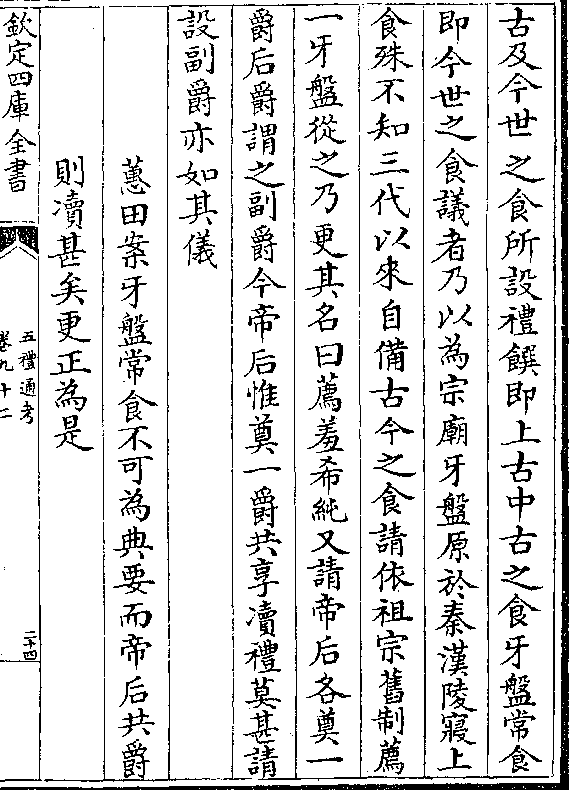 古及今世之食所設禮饌即上古中古之食牙盤常食
即今世之食議者乃以為宗廟牙盤原於秦漢陵寢上
食殊不知三代以來自備古今之食請依祖宗舊制薦
一牙盤從之乃更其名曰薦羞希純又請帝后各奠一
爵后爵謂之副爵今帝后惟奠一爵共享瀆禮莫甚請
設副爵亦如其儀
蕙田案牙盤常食不可為典要而帝后共爵
則瀆甚矣更正為是
欽定四庫全書
五禮通考
卷九十二
二十四